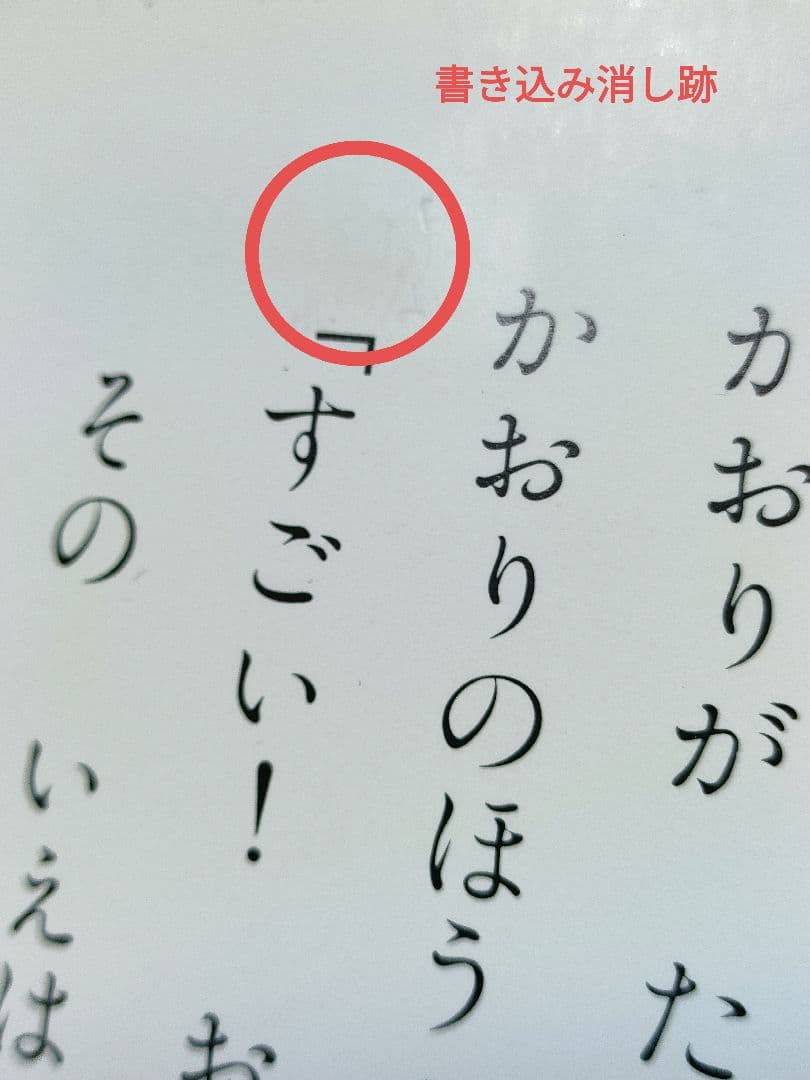 書き込み消し跡
かおりが　た
かおりのほう
「すごい！　お
その　いえは